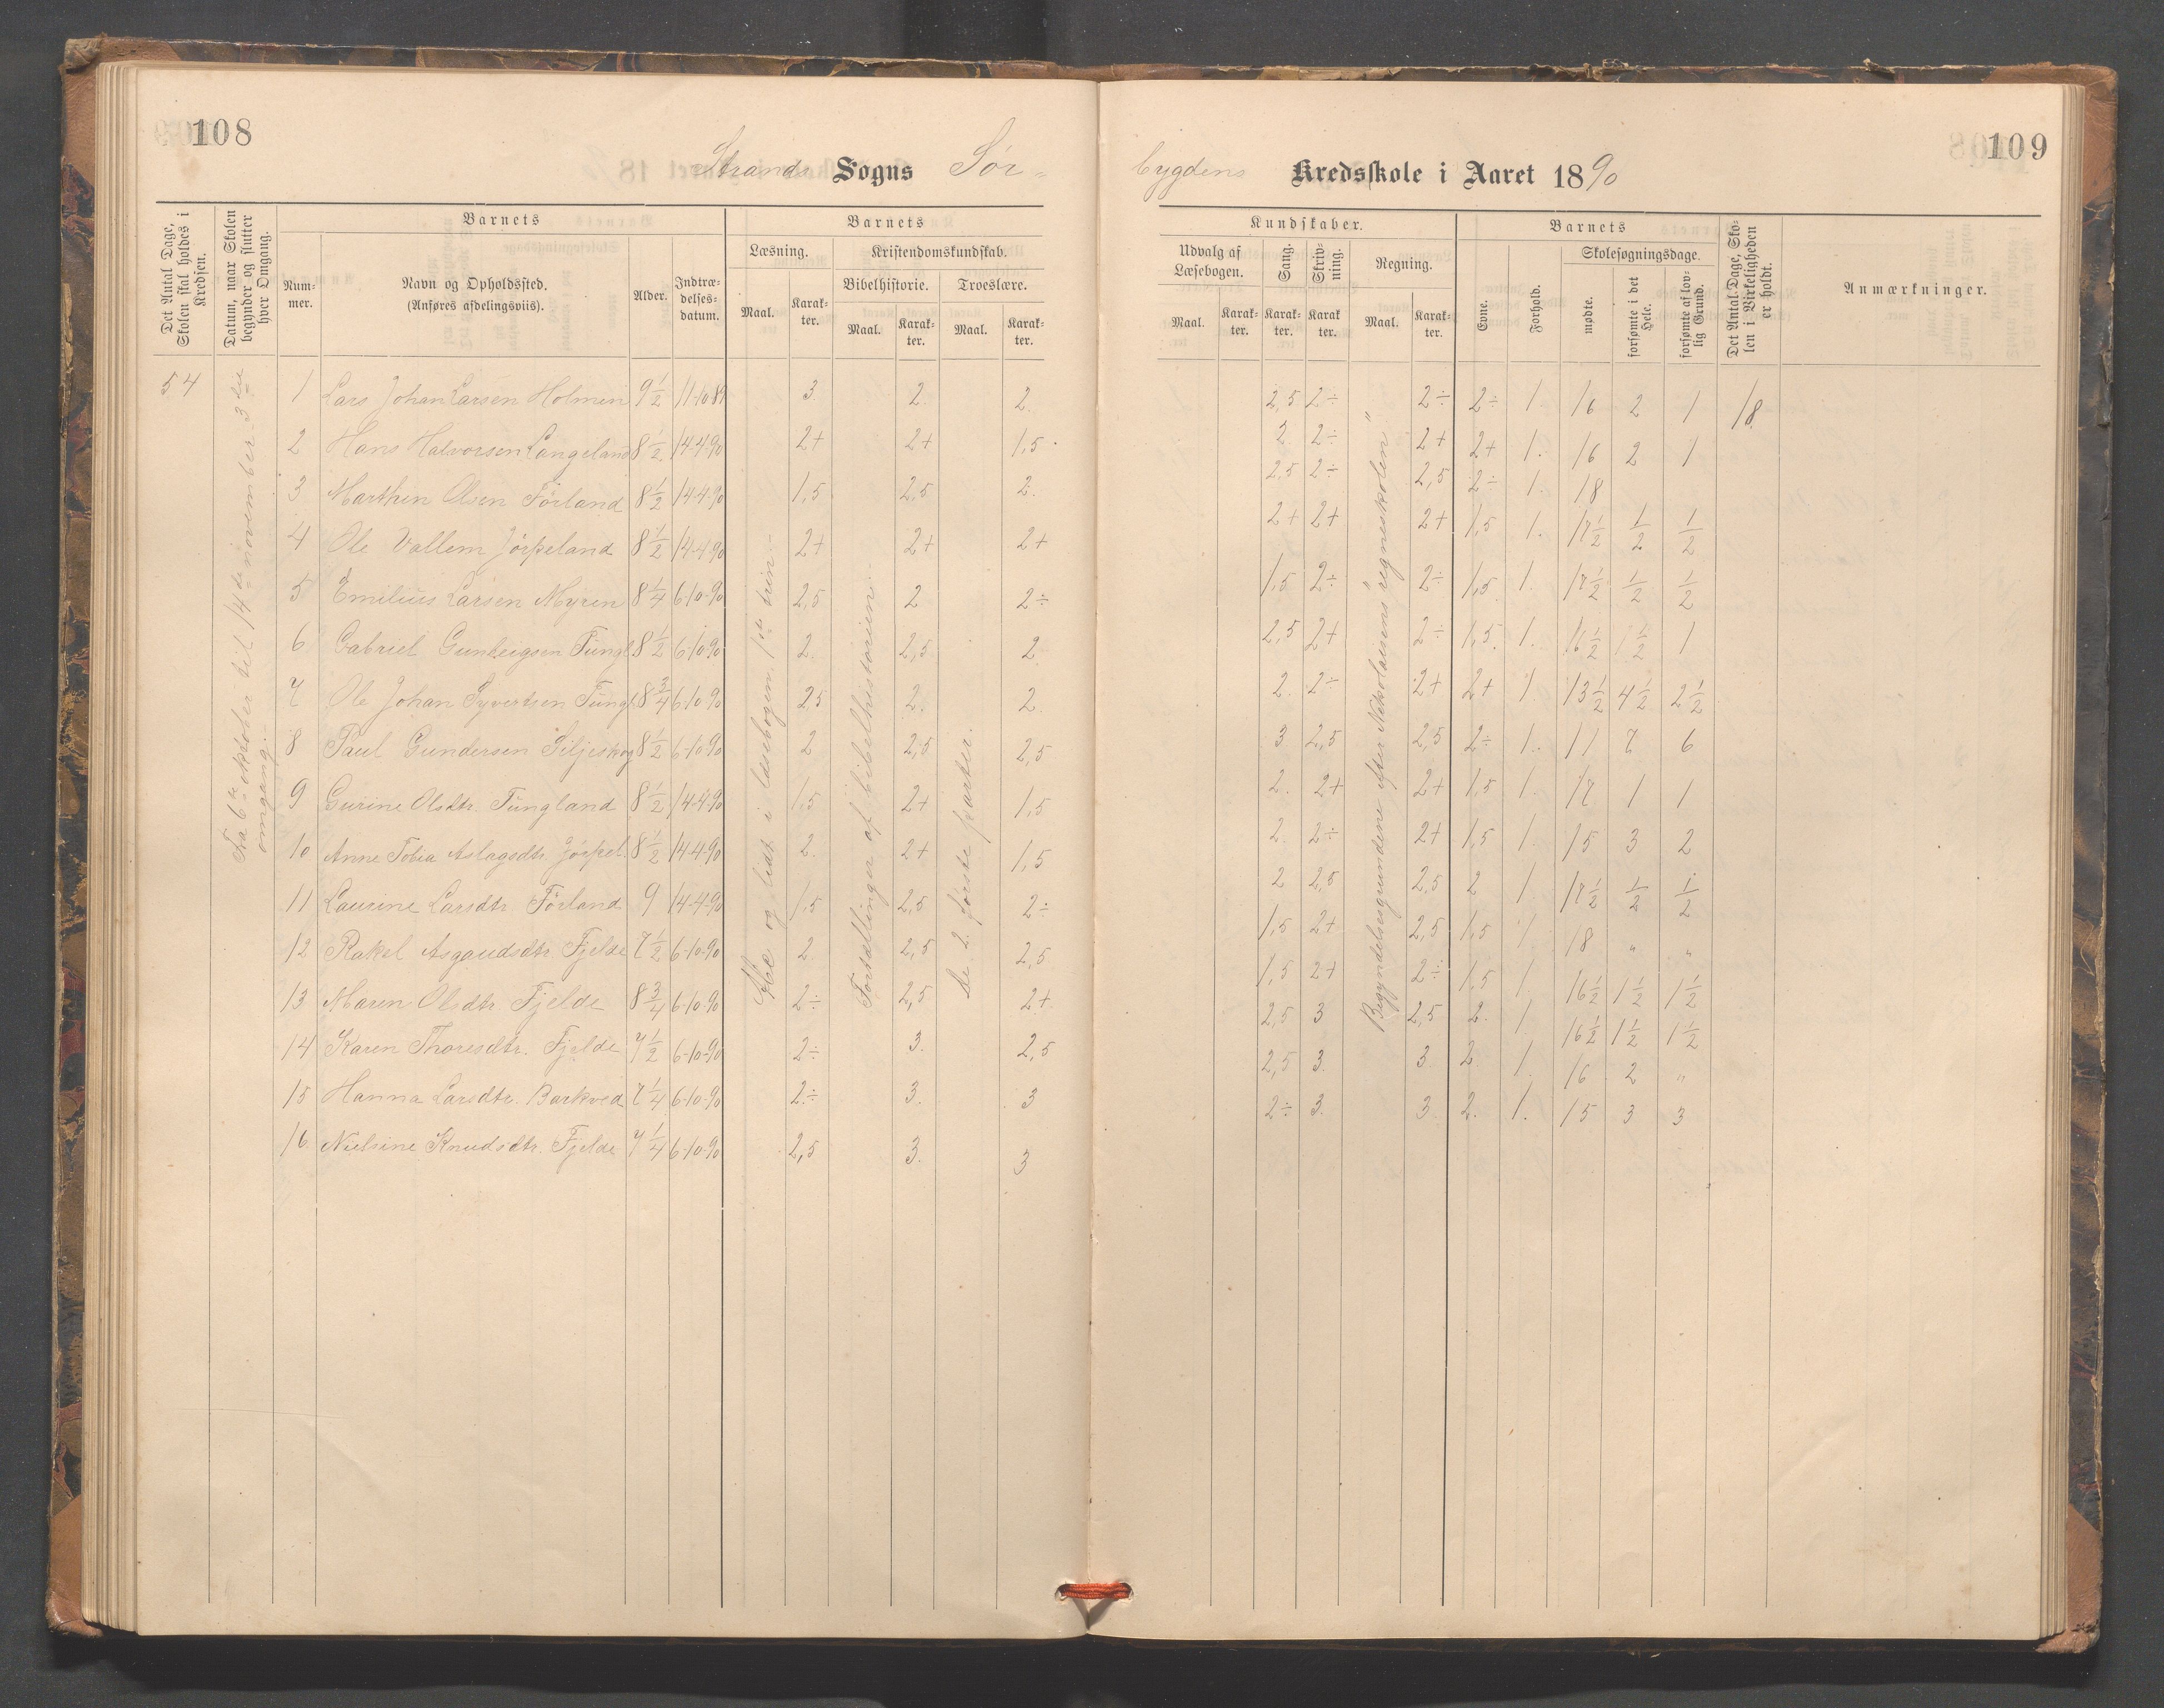 108
Strands Sogns Sör-
Det Antal Dage, Skolen skal holdes i Kredsen.
Datum, naar Skolen begynder og slutter hver Omgang.
Barnets
Num-mer.
Navn og Opholdssted.
(Anføres afdelingsviis).
Alder.
Indtræ-delses-datum.
Barnets
Læsning.
Kristendomskundskab.
Bibelhistorie.
Troeslære.
Maal.
Karak-ter.
Maal.
Karak-ter.
Maal.
Karak-ter.
54
Fra 6te oktober til 14de november 3die omgang.
Abc og lidt i læsebogen 1ste trin.
Fortællinger af bibelhistorien.
De 2 første parter.
1 Lars Johan Larsen Holmen 9 1/2 11-10-89 3. 2. 2.
2 Hans Halvorsen Langeland 8 1/2 14-4-90 2+ 2+ 1,5.
3 Marthin Olsen Förland 8 1/2 14-4-90 1,5 2,5 2.
4 Ole Vallem Jörpeland 8 1/2 14-4-90 2+ 2+ 2+
5 Emilius Larsen Myren 8 1/4 6-10-90 2,5 2 2÷
6 Gabriel Gunleigsen Tungl 8 1/2 6-10-90 2. 2,5 2
7 Ole Johan Syvertsen Tungl. 8 3/4 6-10-90 2,5 2. 2.
8 Paul Gundersen Siljeskog 8 1/2 6-10-90 2 2,5 2,5
9 Gurine Olsdtr. Tungland 8 1/2 14-4-90 1,5 2+ 1,5
10 Anne Tobia Aslagsdtr. Jörpel. 8 1/2 14-4-90 2. 2+ 1,5
11 Laurine Larsdtr. Förland 9 14-4-90 1,5 2,5 2÷
12 Rakel Asgautsdtr. Fjelde 7 1/2 6-10-90 2. 2,5 2,5
13 Maren Olsdtr. Fjelde 8 3/4 6-10-90 2÷ 2,5 2+
14 Karen Thoresdtr. Fjelde 7 1/2 6-10-90 2÷ 3. 2,5
15 Hanna Larsdtr. Barkved 7 1/4 6-10-90 2÷ 3. 3
16 Nielsine Knudsdtr. Fjelde 7 1/4 6-10-90 2,5 3. 3
109
bygdens Kredsskole i Aaret 1890
Kundskaber.
Udvalg af Læsebogen.
Sang.
Skriv-ning.
Regning.
Maal.
Karak-ter.
Karak-ter.
Karak ter.
Maal.
Karak-ter.
Barnets
Evne.
Forhold.
Skolesøgningsdage.
mødte.
forsømte i det Hele.
forsømte af lov-lig Grund.
Det Antal Dage, Sko-len i Virkeligheden er holdt.
Anmærkninger.
Begyndelsesgrundene efter Nikolaisens regneskolen "
2,5 2÷ 2÷ 2÷ 1. 16 2 1 18.
2. 2÷ 2+ 2+ 1. 16 2 1
2,5 2÷ 2,5 2÷ 1. 18
2+ 2+ 2+ 1,5 1. 17 1/2 1/2 1/2
1,5 2÷ 2÷ 1,5. 1. 17 1/2 1/2 1/2
2,5 2+ 2÷ 1,5. 1. 16 1/2 1 1/2 1
2. 2÷ 2+ 2+ 1. 13 1/2 4 1/2 2 1/2
3 2,5 2,5 2÷ 1. 11 7 6
2. 2+ 2+ 1,5 1. 17 1 1
2. 2÷ 2+ 1,5 1. 15 3 2
2 2,5 2,5 2 1. 17 1/2 1/2 1/2
1,5 2+ 2,5 1,5 1 18 " "
1,5 2+ 2÷ 1,5 1. 16 1/2 1 1/2 1 1/2
2,5 3 2,5 2. 1. 16 1/2 1 1/2 1 1/2
2,5 3. 3. 2. 1. 16 2 "
2÷ 3. 3. 2. 1. 15 3 3